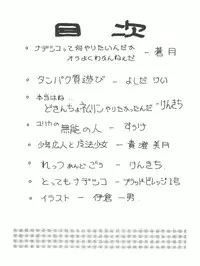 目次
・ナデシコって何やりたいんだか
オラよくわかんねえだ － 蒼月
・タンパク質遊び － よしだ けい
・本当はね
どきんちゃネルソンやりたかったんだ － けんきち
・ユリカの無能の人 － すうけ
・少年広人と魔法少女 － 貴澄 美月
・れっつあんどごう － けんきち
・とってもナデシコ － ブラッドビレッジ1号
・イラスト － 伊倉 一男